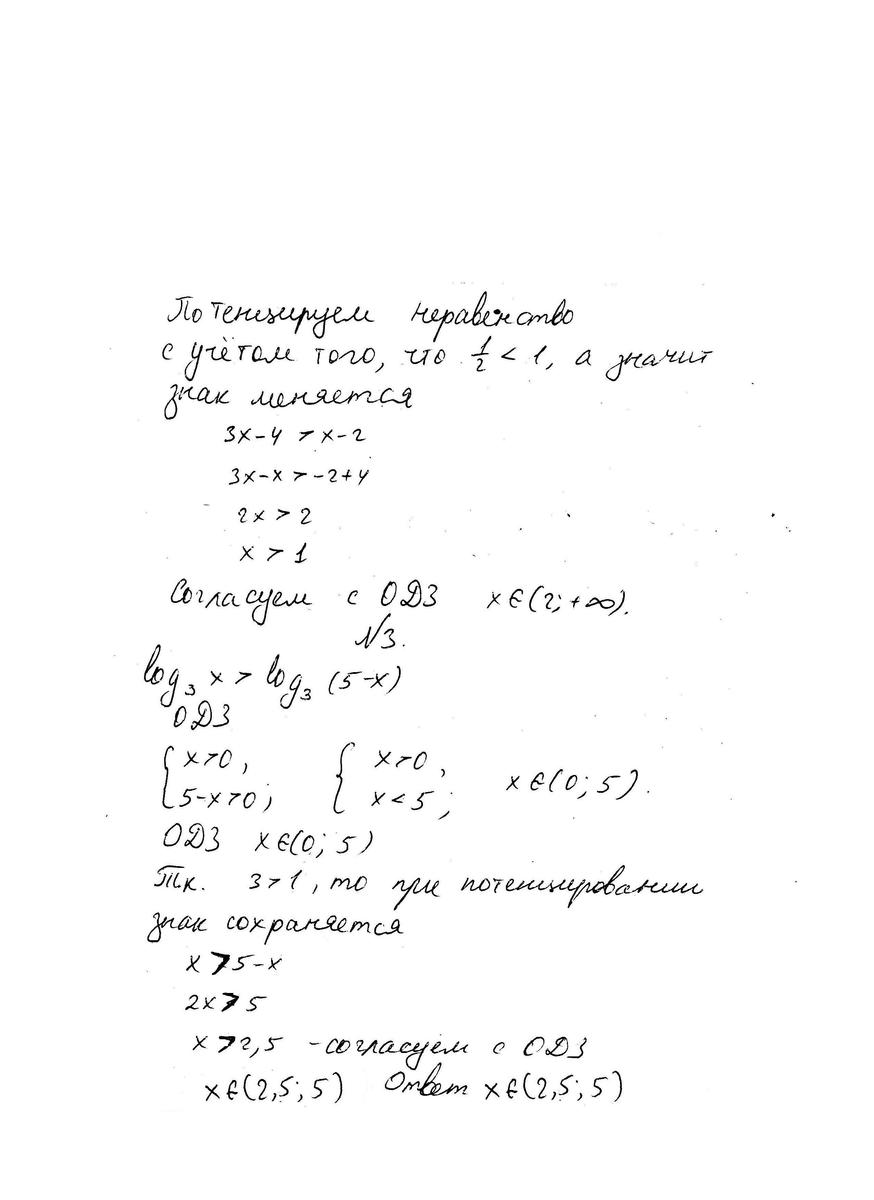 Потенцируем неравенство
с учётом того, что 1/2 < 1, а значит
знак меняется
3x-4 > x-2
3x-x > -2+4
2x > 2
x > 1
Согласуем с ОДЗ x∈(2; +∞).
N3.
log₃ x > log₃ (5-x)
ОДЗ
{ x>0, { x>0, x∈(0; 5).
{ 5-x>0; { x<5;
ОДЗ x∈(0; 5)
Т.к. 3>1, то при потенцировании
знак сохраняется
x > 5-x
2x > 5
x > 2,5 - согласуем с ОДЗ
x∈(2,5; 5) Ответ x∈(2,5; 5)